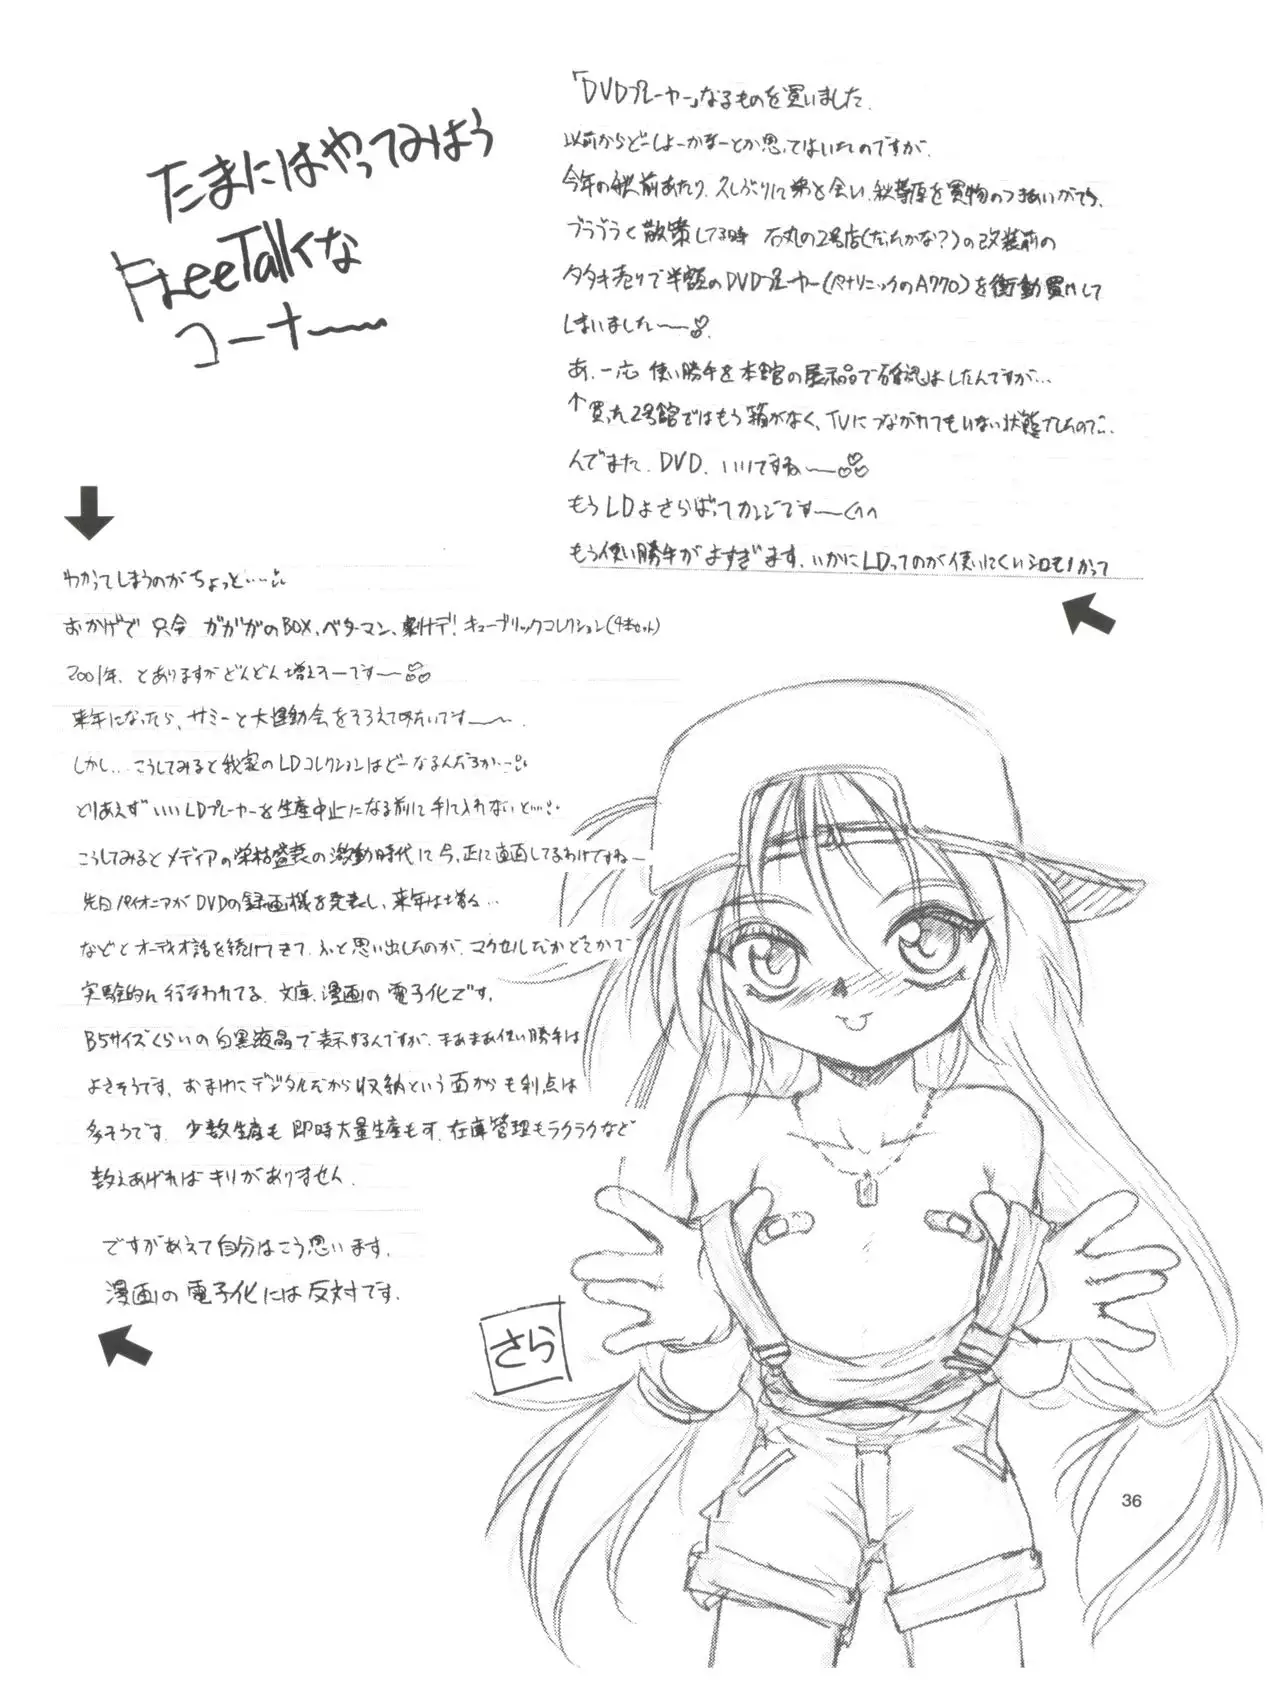 たまにはやってみはう
FreeTalkな
コーナー〜〜
「DVDプレーヤー」なるものを買いました.
以前からどーしよーかなーとか思ってはいたのですが、
今年の秋前あたり、久しぶりに弟と会い、秋葉原を買物のつきあいがてら、
ブラブラと散策してる時 石丸の2号店(だったかな?)の改装前の
タタキ売りで半額のDVDプレーヤー(パナソニックのA770)を衝動買いして
しまいました〜〜
あ、一応 使い勝手を本館の展示品で確認はしたんですが…
↑買った2号館ではもう箱がなく、TVにつながれてもいない状態でしたので…
んでまた、DVD、いいですね〜〜
もうLDよさらばってカンジです〜〜(^^
もう使い勝手がよすぎます、いかにLDってのが使いにくいシロモノかって
わかってしまうのがちょっと…
おかげで 只今 ガガガのBOX、ベターマン、劇ナデ! キューブリックコレクション(4本セット)
2001年、とありますがどんどん増えそーです〜〜
来年になったら、サミーと大運動会をそろえてみたいです〜〜.
しかし…こうしてみると我家のLDコレクションはどーなるんだろか…
とりあえずいいLDプレーヤーを生産中止になる前に手に入れないと…
こうしてみるとメディアの栄枯盛衰の激動時代に今、正に直面してるわけですね〜
先日パイオニアがDVDの録画機を発表し、来年は増える…
などとオーディオ話を続けてきて、ふと思い出したのが、マクセルだかどこかで
実験的に行なわれてる、文庫、漫画の電子化です.
B5サイズくらいの白黒液晶で表示するんですが、まあまあ使い勝手は
よさそうです、おまけにデジタルだから収納という面からも利点は
多そうです、少数生産も即時大量生産もす、在庫管理もラクラクなど
数えあげればキリがありません.
ですがあえて自分はこう思います.
漫画の電子化には反対です.
さら
36